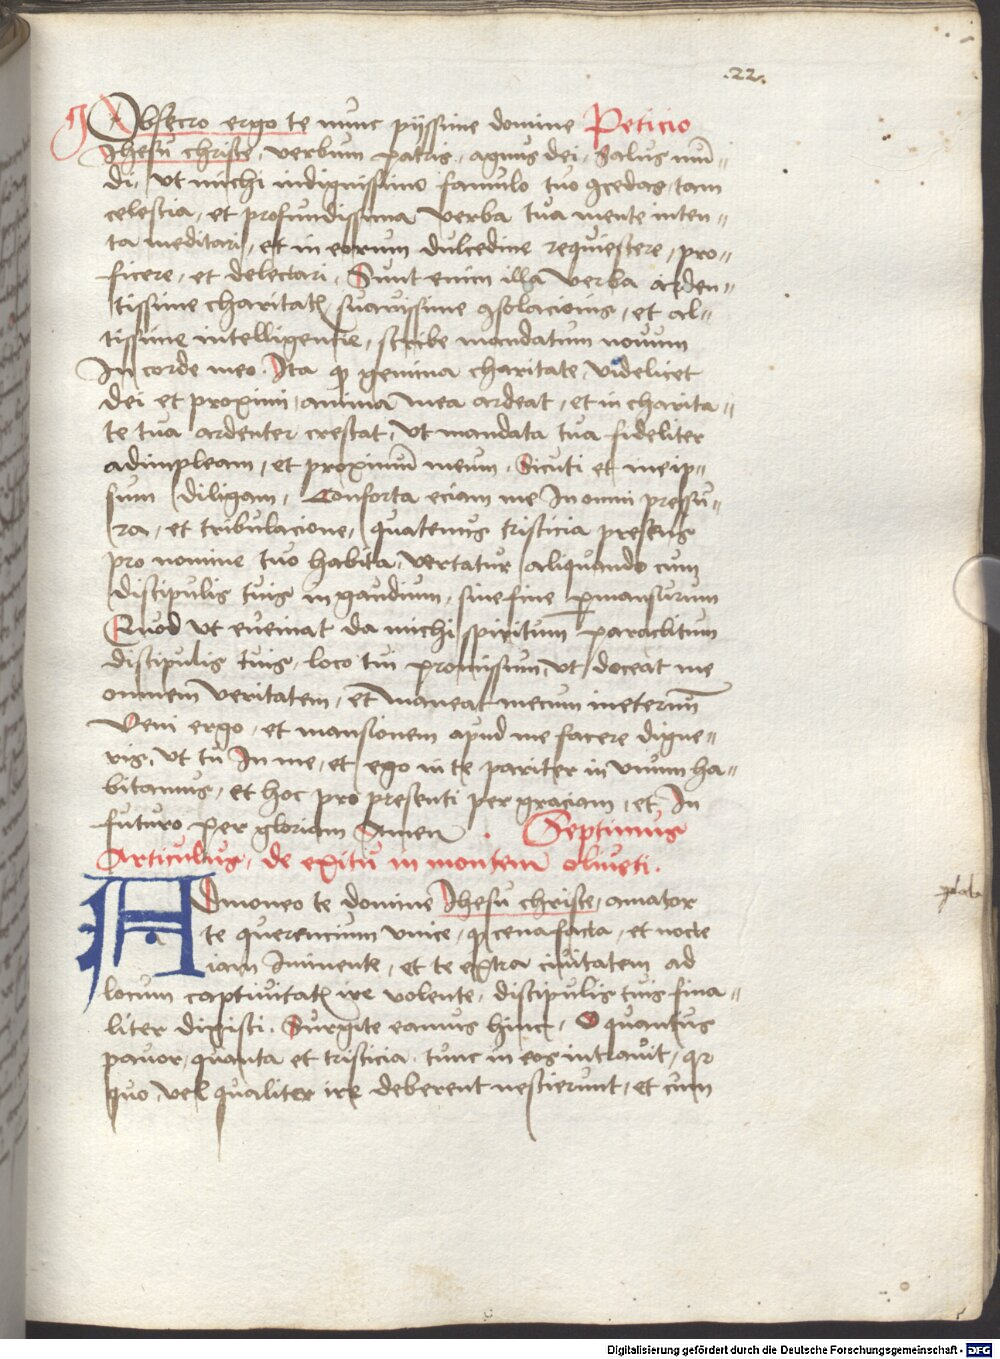 .22.
Obsecro ergo te nunc pijssime domine Peticio
Jhesu christe, verbum patris, agnus dei, Salus mū„
di, vt michi indignissimo famulo tuo ꝯcedas, tam
celestia, et profundissima verba tua mente inten„
ta meditari, et in eorum dulcedine requiescere, pro„
ficere, et delectari, Sunt enim illa verba arden„
tissime charitatꝭ suauissime ꝯsolacionis, et al„
tissime intelligentie, scribe mandatum nouum
In corde meo. Ita ꝙ gemina charitate, videlicet
dei et proximi, anima mea ardeat, et in charita„
te tua ardenter crescat, vt mandata tua fideliter
adimpleam, et proximū meum, Sicuti et meip„
sum diligam, Conforta eciam me In omni pressu„
ra, et tribulacione, quatenus tristicia presens
pro nomine tuo habita, vertatur aliquando cum
discipulis tuis in gaudium, sine fine ꝑmansurum
Quod vt eueniat da michi spiritum paraclitum
discipulis tuis, loco tui promissum, vt doceat me
omnem veritatem, et maneat mecum ineternū
Veni ergo, et mansionem apud me facere digne„
ris, vt tu In me, et ego in te pariter in vnum ha„
bitamus, et hoc pro presenti per graciam, et In
futuro per gloriam Amen . Septimus
Articulus, de exitu in montem oliueti.
Admoneo te domine Jhesu christe, amator
te querencium vnice, ꝙ cena facta, et nocte
iam Iminente, et te extra ciuitatem ad
locum captiuitatꝭ ire volente, discipulis tuis fina„
liter dixisti. Surgite eamus hinc, O quantus
pauor, quanta et tristicia, tunc in eos intrauit, qr
quo, vel qualiter ire deberent nescierunt, et cum
Digitalisierung gefördert durch die Deutsche Forschungsgemeinschaft - DFG